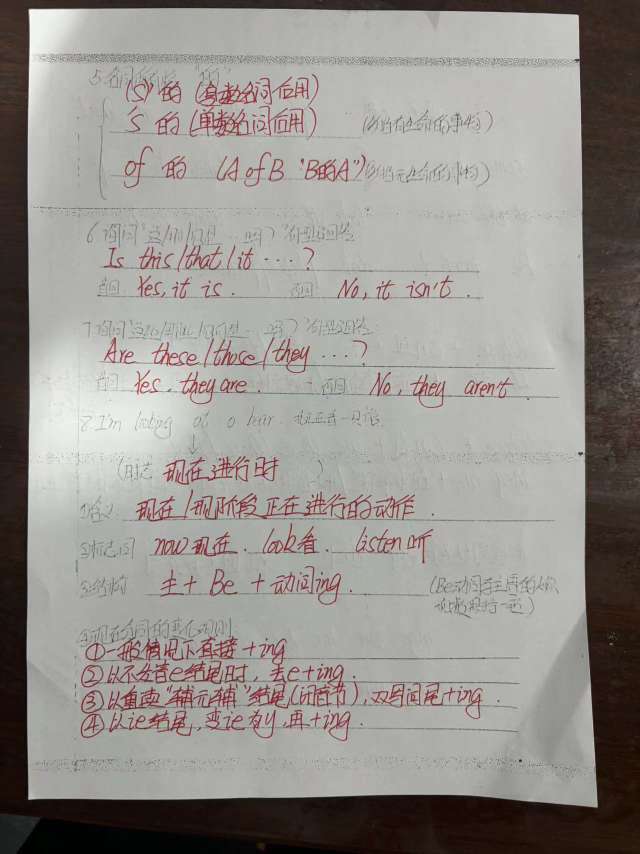 5.名词所有格 "的"
(s)' 的 (复数名词后用)
's 的 (单数名词后用) (修饰有生命的事物)
of 的 (A of B "B的A") (修饰无生命的事物)
6.询问"这/那/它是…吗?"句型及回答
Is this/that/it …?
肯回 Yes, it is. 否回 No, it isn't.
7.询问"这些/那些/它们是…吗?"句型及回答
Are these/those/they …?
肯回 Yes, they are. 否回 No, they aren't.
8.I'm looking at a bear. 我正在看一只熊.
(时态 现在进行时 )
①含义 现在/现阶段正在进行的动作.
②标志词 now现在. look看. listen听
③结构 主+Be+动词ing. (Be动词与主语的人称
和数保持一致)
④现在分词的变化规则
①一般情况下直接+ing
②以不发音e结尾时,去e+ing.
③以重读"辅元辅"结尾(闭音节),双写词尾+ing.
④以ie结尾,变ie为y,再+ing.